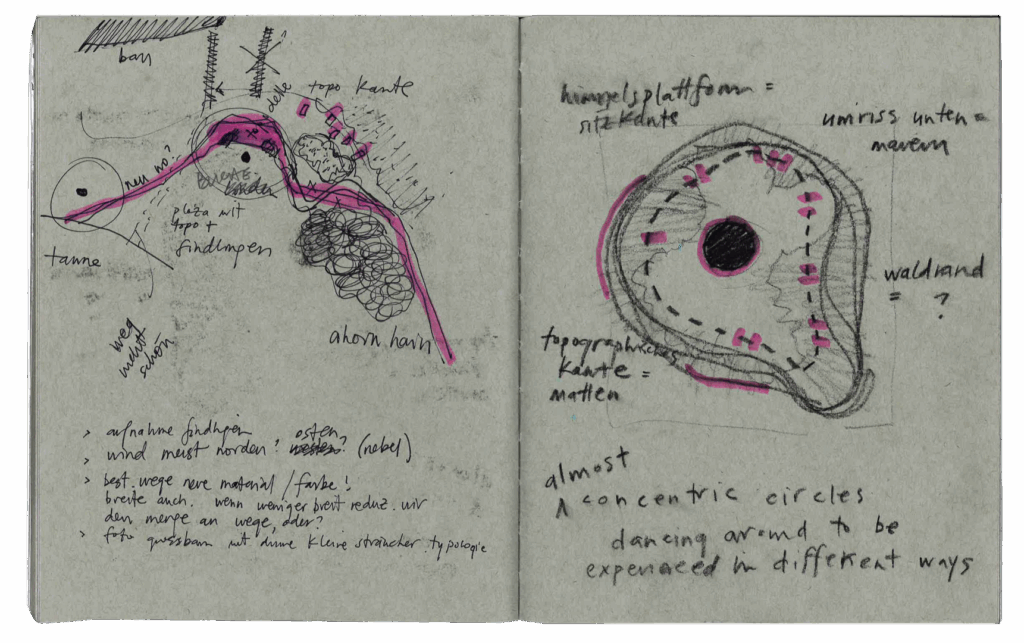 bau
delle
topo kante
neu wo?
plaza mit
topo +
findlingen
tanne
weg
nicht
schön
ahorn hain
> aufnahme findlingen
osten
> wind meist norden? ? (nebel)
> best. wege neue material / farbe!
breite auch. wenn weniger breit reduz. wir
den menge an wege, oder?
> foto mit dünne kleine sträucher typologie
himmelsplattform =
sitzkante
umriss unten =
mauern
waldrand
= ?
topographisches
kante =
matten
almost
^ concentric circles
dancing around to be
experienced in different ways